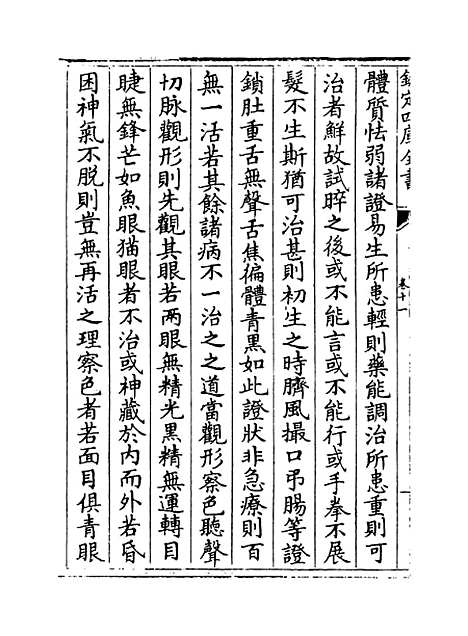 欽定四庫全書
卷十一
體質怯弱諸證易生所患輕則藥能調治所患重則可
治者鮮故試晬之後或不能言或不能行或手拳不展
髮不生斯猶可治甚則初生之時臍風撮口弔腸等證
鎖肚重舌無聲舌焦徧體青黑如此證狀非急療則百
無一活若其餘諸病不一治之之道當觀形察色聽聲
切脉觀形則先觀其眼若兩眼無精光黑精無運轉目
睫無鋒芒如魚眼猫眼者不治或神藏於內而外若昏
困神氣不脱則豈無再活之理察色者若面目俱青眼